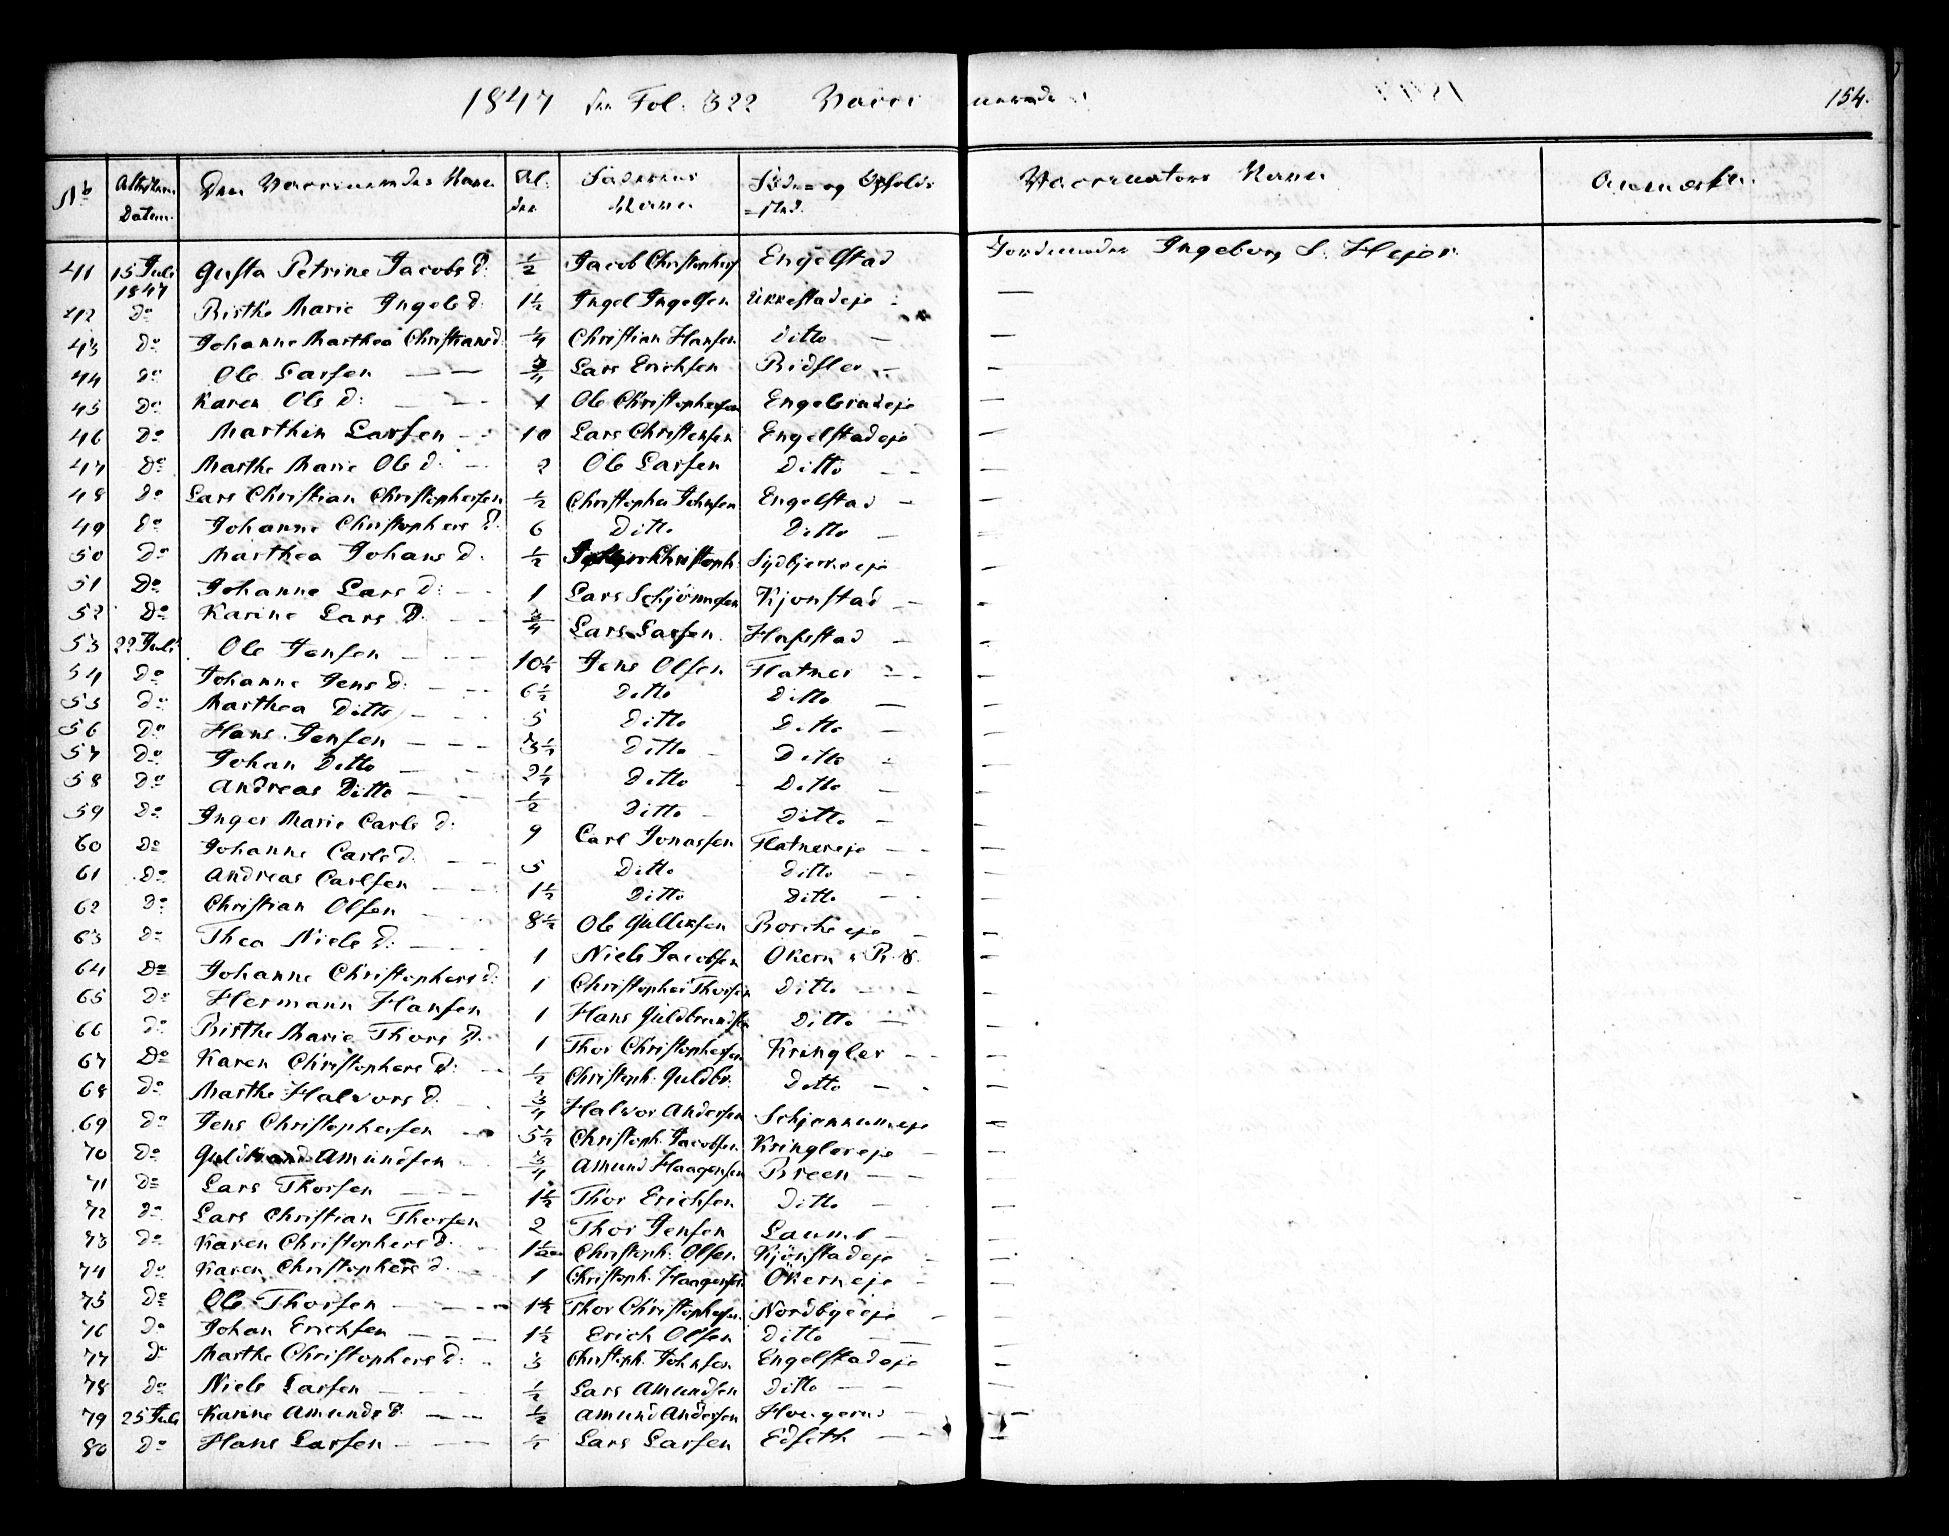 1847 see Fol: 322 Vaccinerede 154.
No Attestens Datum. Den Vaccineredes Navn Alder Faderens Navn Føde- og Opholds-Sted. Vaccinators Navn Anmærkn.
41 15 Juli 1847 Gusta Petrine Jacobs d: 1/2 Jacob Christophers Engelstad Jordemoder Ingeborg S. Hejer.
42 Do Birthe Marie Ingels d: 1 1/2 Ingel Ingelsen Ukkestadeje —
43 Do Johanne Marthea Christians d. 1/4 Christian Hansen Ditto —
44 Do Ole Larsen 3/4 Lars Erichsen Ridsler —
45 Do Karen Ols d: 1 Ole Christophersen Engelsrudeje —
46 Do Marthin Larsen 10 Lars Christensen Engelstadeje —
47 Do Marthe Marie Ols d: 2 Ole Larsen Ditto —
48 Do Lars Christian Christophersen 1/2 Christopher Johnsen Engelstad —
49 Do Johanne Christophers d. 6 Ditto Ditto —
50 Do Marthea Johans d. 1/2 Christoph: Sydbjerkeeje —
51 Do Johanne Lars d: 1 Lars Schjønnesen Kjonstad —
52 Do Karine Lars D. 3/4 Lars Larsen Hafsestad —
53 22 Juli Ole Jensen 10 1/2 Jens Olsen Flatner —
54 Do Johanne Jens d: 6 1/2 Ditto Ditto —
55 Do Marthea Ditto 5 Ditto Ditto —
56 Do Hans Jensen 3 1/2 Ditto Ditto —
57 Do Johan Ditto 2 1/2 Ditto Ditto —
58 Do Andreas Ditto 1/2 Ditto Ditto —
59 Do Inger Marie Carls d: 9 Carl Jonassen Flatnereje —
60 Do Johanne Carls d: 5 Ditto Ditto —
61 Do Andreas Carlsen 1 1/2 Ditto Ditto —
62 Do Christian Olsen 8 1/2 Ole Gulliksen Borcheeje —
63 Do Thea Niels d: 1 Niels Jacobsen Okern —
64 Do Johanne Christophers d: 1 Christopher Thorsen Ditto —
65 Do Hermann Hansen 1 Hans Guldbrandsen Ditto —
66 Do Birthe Marie Thors D. 1 Thor Christophersen Kringler —
67 Do Karen Christophers d: 1/2 Christoph: Guldbr: Ditto —
68 Do Marthe Halvors d. 3/4 Halvor Andersen Schjønnumeje —
69 Do Jens Christophersen 5 1/2 Christoph: Jacobsen Kringlereje —
70 Do Guldbrand Amundsen 3/4 Amund Haagensen Breen —
71 Do Lars Thorsen 1 1/2 Thor Erichsen Ditto —
72 Do Lars Christian Thorsen 2 Thor Jensen Laumb —
73 Do Karen Christophers d. 1 1/2 Christoph: Olsen Kjönstadeje —
74 Do Karen Christophers d. 1 Christoph: Haagensen Ökerneje —
75 Do Ole Thorsen 1 1/2 Thor Christophersen Nordbyeeje —
76 Do Johan Erichsen 1 1/2 Erich Olsen Ditto —
77 Do Marthe Christophers d: 3 Christoph: Johnsen Engelstadeje —
78 Do Niels Larsen 1/2 Lars Amundsen Ditto —
79 25 Juli Karine Amunds D. 1/2 Amund Andersen —
80 Do Hans Larsen 1/2 Lars Larsen Edseth —